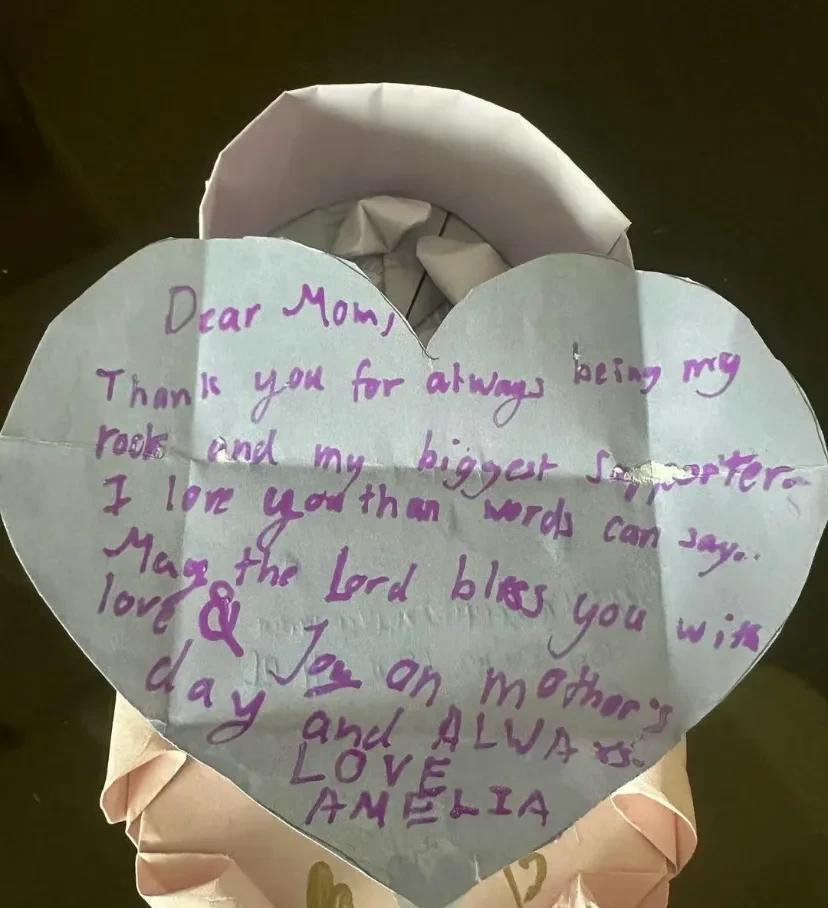 Dear Mom,
Thank you for always being my
rock and my biggest supporter.
I love you than words can say..
May the Lord bless you with
love & Joy on mother's
day and ALWAYS.
LOVE
AMELIA